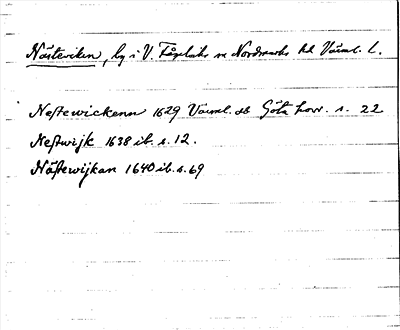 Nästeviken, by i V. Fågelviks sn Nordmarks hd Värml. l.
Nestewickenn 1629 Värml. ob Göta hovr. s. 22
Nestwijk 1638 ib. s. 12.
Nästewijkan 1640 ib. s. 69